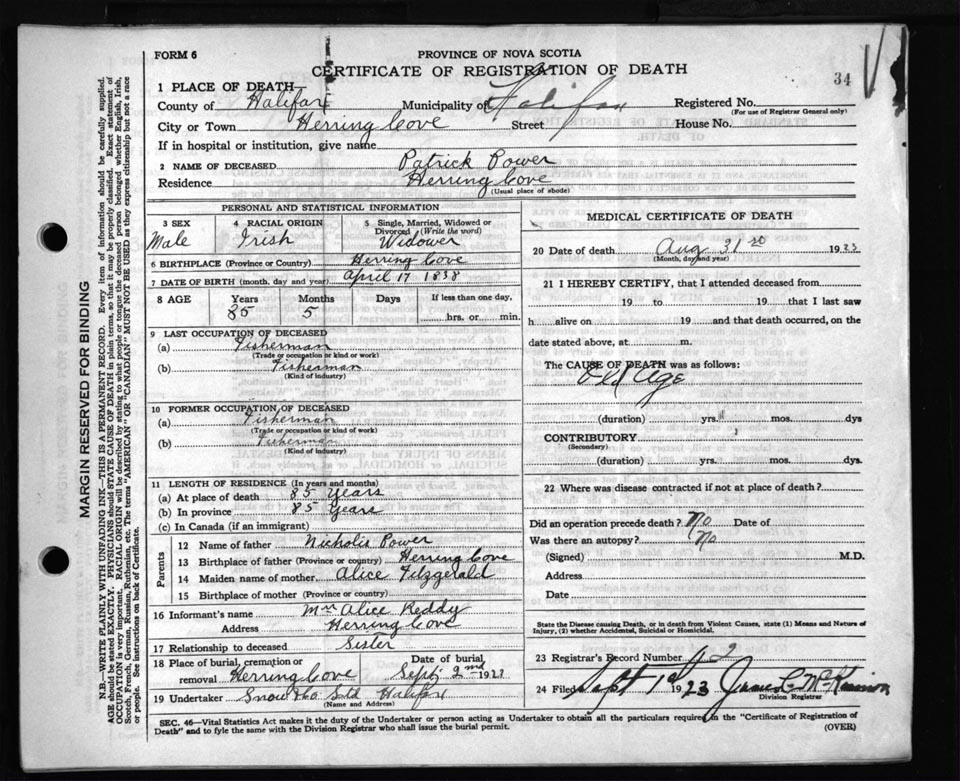 FORM 6
PROVINCE OF NOVA SCOTIA
CERTIFICATE OF REGISTRATION OF DEATH
34
1 PLACE OF DEATH
County of Halifax Municipality of Halifax Registered No.
(For use of Registrar General only)
City or Town Herring Cove Street House No.
If in hospital or institution, give name
2 NAME OF DECEASED Patrick Power
Residence Herring Cove
(Usual place of abode)
PERSONAL AND STATISTICAL INFORMATION
3 SEX Male
4 RACIAL ORIGIN Irish
5 Single, Married, Widowed or Divorced (Write the word) Widower
6 BIRTHPLACE (Province or Country) Herring Cove
7 DATE OF BIRTH (month, day and year) April 17 1838
8 AGE Years Months Days If less than one day,
85 5 hrs. or min.
9 LAST OCCUPATION OF DECEASED
(a) Fisherman
(Trade or occupation or kind or work)
(b) Fisherman
(Kind of industry)
10 FORMER OCCUPATION OF DECEASED
(a) Fisherman
(Trade or occupation or kind of work)
(b) Fisherman
(Kind of industry)
11 LENGTH OF RESIDENCE (In years and months)
(a) At place of death 85 Years
(b) In province 85 Years
(c) In Canada (if an immigrant)
Parents
12 Name of father Nicholis Power
13 Birthplace of father (Province or country) Herring Cove
14 Maiden name of mother Alice Fitzgerald
15 Birthplace of mother (Province or country)
16 Informant's name Mrs Alice Reddy
Address Herring Cove
17 Relationship to deceased Sister
18 Place of burial, cremation or removal Herring Cove
Date of burial Sept 2nd 1923
19 Undertaker Snow & Co Ltd Halifax
(Name and Address)
MEDICAL CERTIFICATE OF DEATH
20 Date of death Aug 31st 1923
(Month, day and year)
21 I HEREBY CERTIFY, that I attended deceased from
19 to 19 that I last saw
h alive on 19 and that death occurred, on the
date stated above, at m.
The CAUSE OF DEATH was as follows:
Old Age
(duration) yrs. mos. dys
CONTRIBUTORY
(Secondary)
(duration) yrs. mos. dys.
22 Where was disease contracted if not at place of death?
Did an operation precede death? No Date of
Was there an autopsy? No
(Signed) M.D.
Address
Date
State the Disease causing Death, or in death from Violent Causes, state (1) Means and Nature of
Injury, (2) whether Accidental, Suicidal or Homicidal.
23 Registrar's Record Number 42
24 Filed Sept 1st 1923 James C
Division Registrar
SEC. 46—Vital Statistics Act makes it the duty of the Undertaker or person acting as Undertaker to obtain all the particulars required in the "Certificate of Registration of
Death" and to fyle the same with the Division Registrar who shall issue the burial permit.
(OVER)
MARGIN RESERVED FOR BINDING
N.B.—WRITE PLAINLY WITH UNFADING INK—THIS IS A PERMANENT RECORD. Every item of information should be carefully supplied.
AGE should be stated EXACTLY. PHYSICIANS should STATE CAUSE OF DEATH in plain terms, so that it may be properly classified. Exact statement of
OCCUPATION is very important. RACIAL ORIGIN will be described by stating to what people or tongue the deceased person belonged whether English, Irish,
Scotch, French, German, Russian, Ruthenian, etc. The terms "AMERICAN" OR "CANADIAN" MUST NOT BE USED as they express citizenship but not a race
or people. See instructions on back of Certificate.